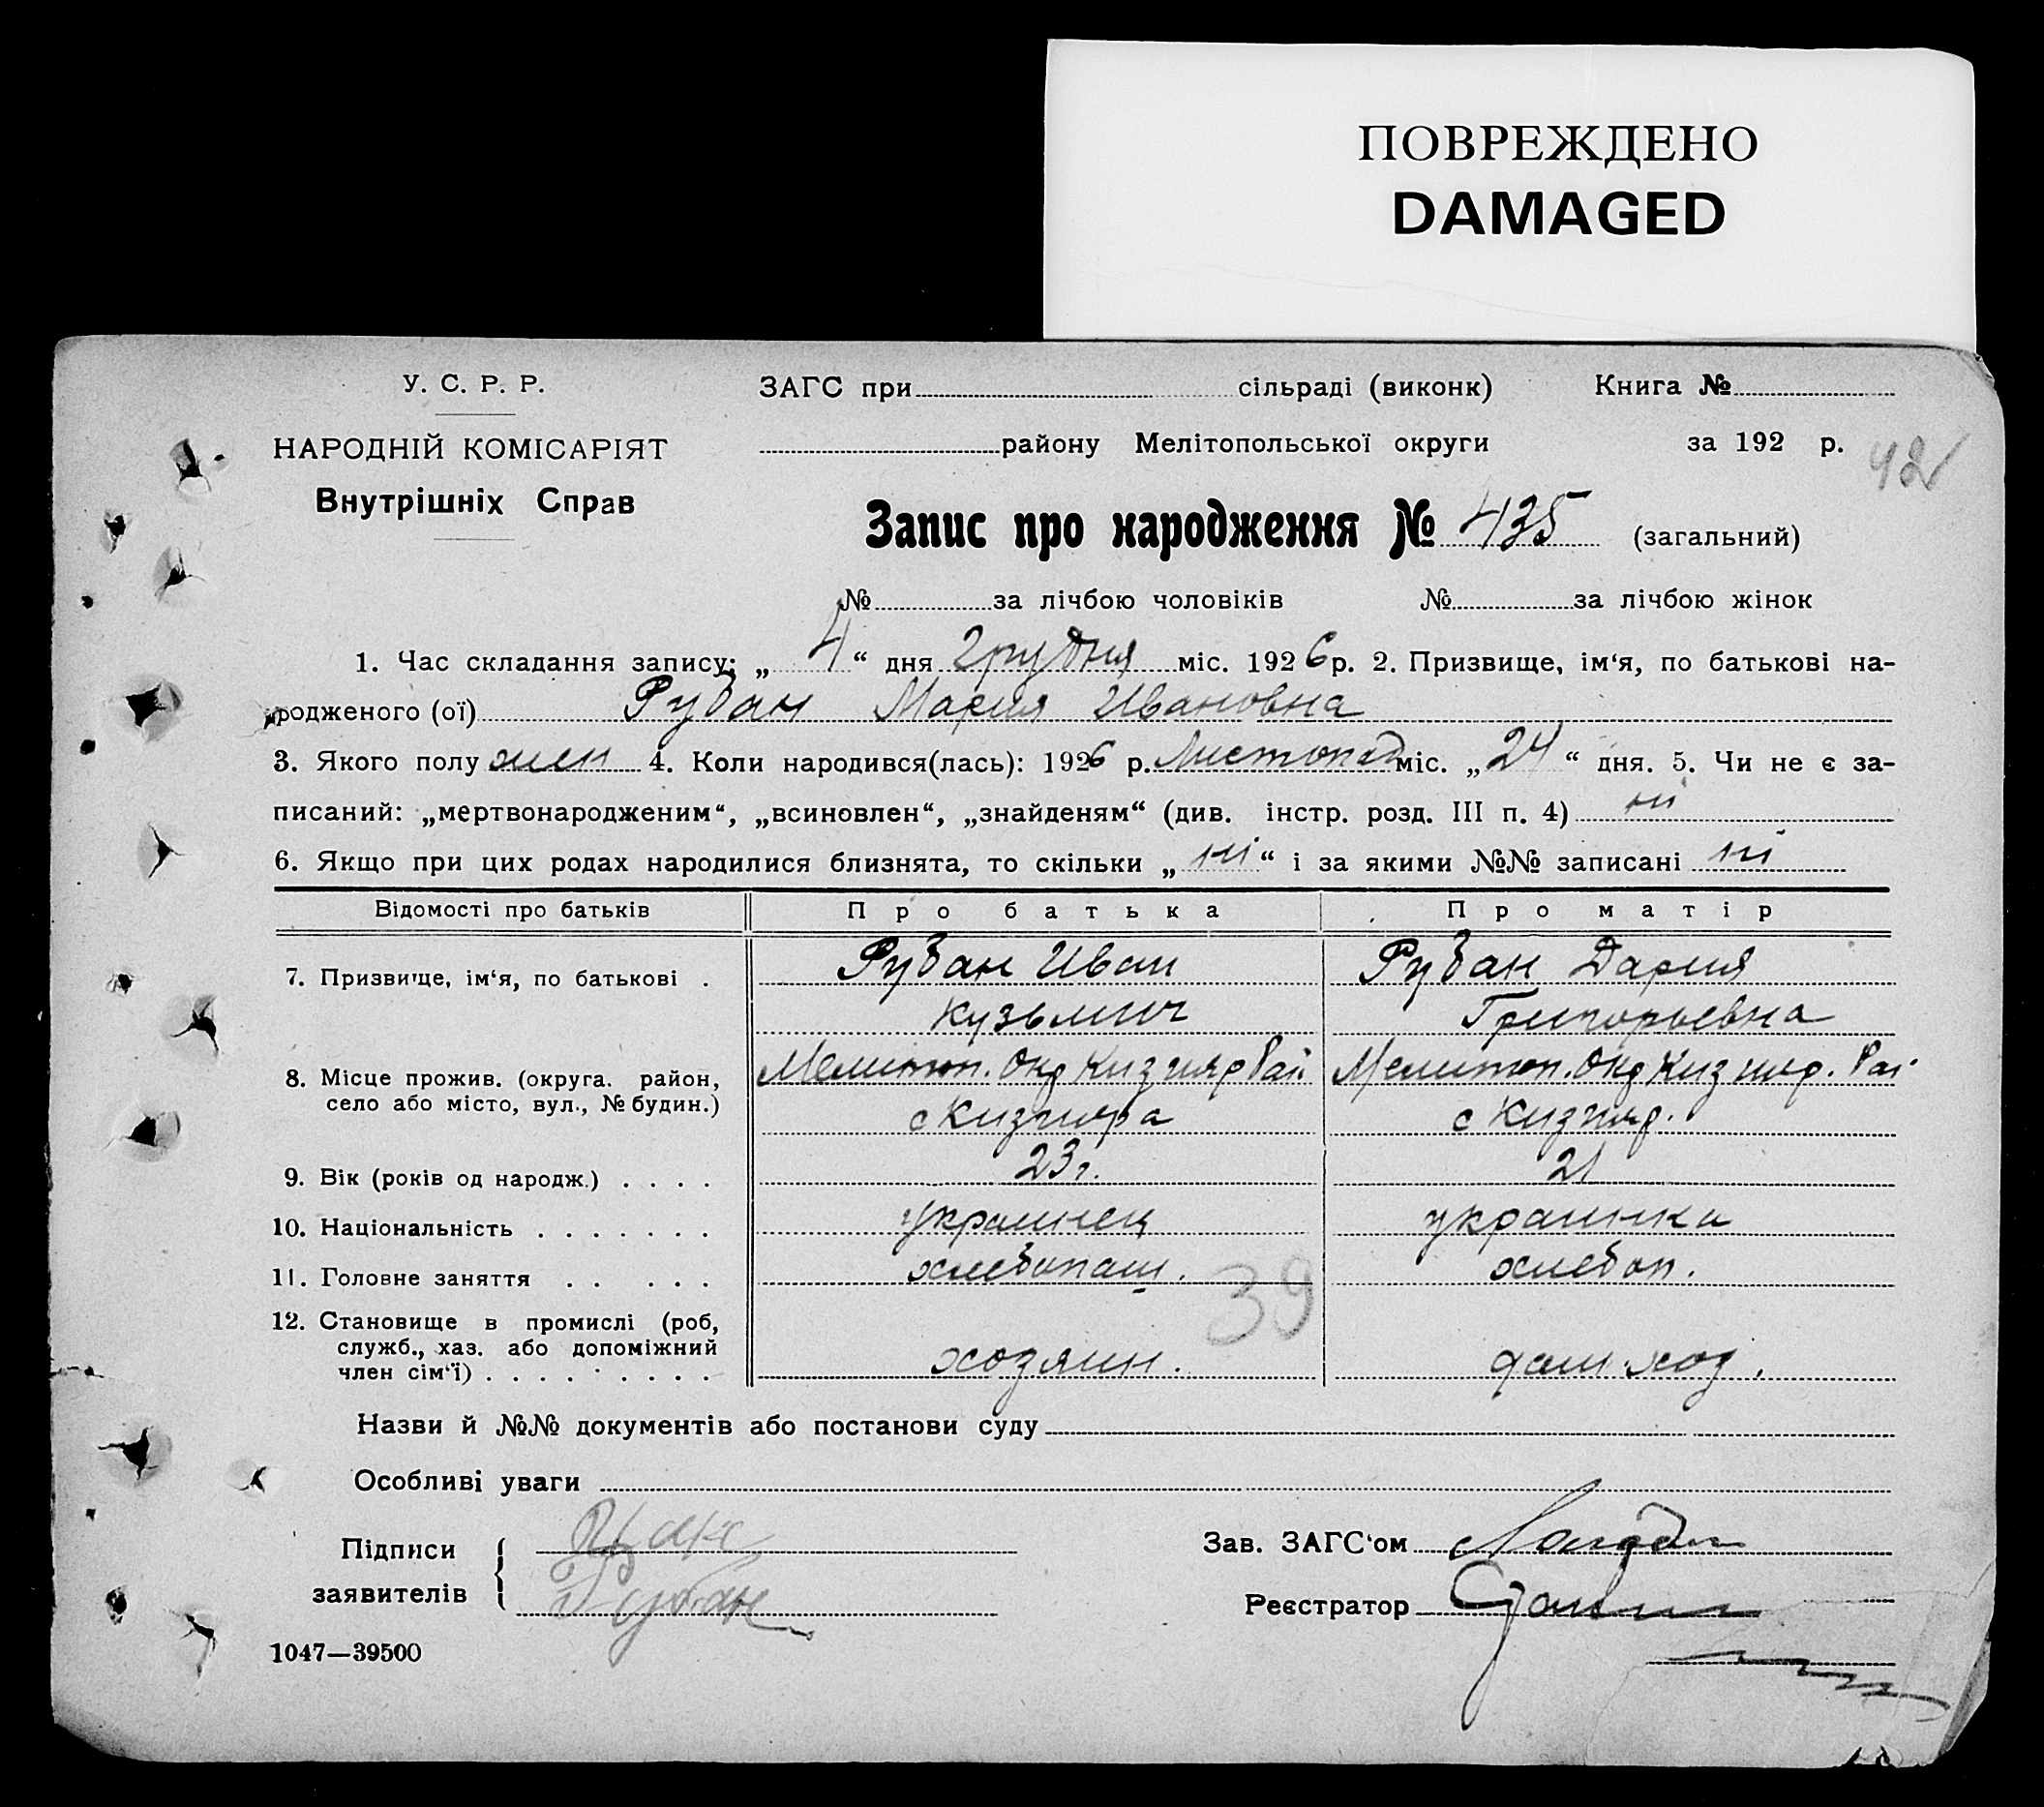 ПОВРЕЖДЕНО
DAMAGED
У. С. Р. Р.
НАРОДНІЙ КОМІСАРІЯТ
Внутрішніх Справ
ЗАГС при сільраді (виконк) Книга №
району Мелітопольської округи за 192 р.
42
Запис про народження № 435 (загальний)
№ за лічбою чоловіків № за лічбою жінок
1. Час складання запису: „ 4 “ дня Грудня міс. 1926 р. 2. Призвище, ім‘я, по батькові на-
родженого (ої) Рубан Мария Ивановна
3. Якого полу жен 4. Коли народився(лась): 1926 р. Листопад міс. „ 24 “ дня. 5. Чи не є за-
писаний: „мертвонародженим“, „всиновлен“, „знайденям“ (див. інстр. розд. III п. 4) ні
6. Якщо при цих родах народилися близнята, то скільки „ ні “ і за якими №№ записані ні
Відомості про батьків Про батька Про матір
7. Призвище, ім‘я, по батькові . Рубан Иван Рубан Дария
Кузьмич Григорьевна
8. Місце прожив. (округа. район, Мелитоп. Окр Кизияр Рай Мелитоп. Окр Кизияр. Рай
село або місто, вул., № будин.) с Кизияра с Кизияр.
9. Вік (років од народж.) . . . . 23 г. 21
10. Національність . . . . . . . украинец украинка
11. Головне заняття . . . . . хлебопаш. хлебоп.
39
12. Становище в промислі (роб,
служб., хаз. або допоміжний
член сім‘ї) . . . . . . . . . хозяин. дом. хоз.
Назви й №№ документів або постанови суду
Особливі уваги
Підписи
заявителів Рубан
Зав. ЗАГС‘ом
Реєстратор
1047—39500